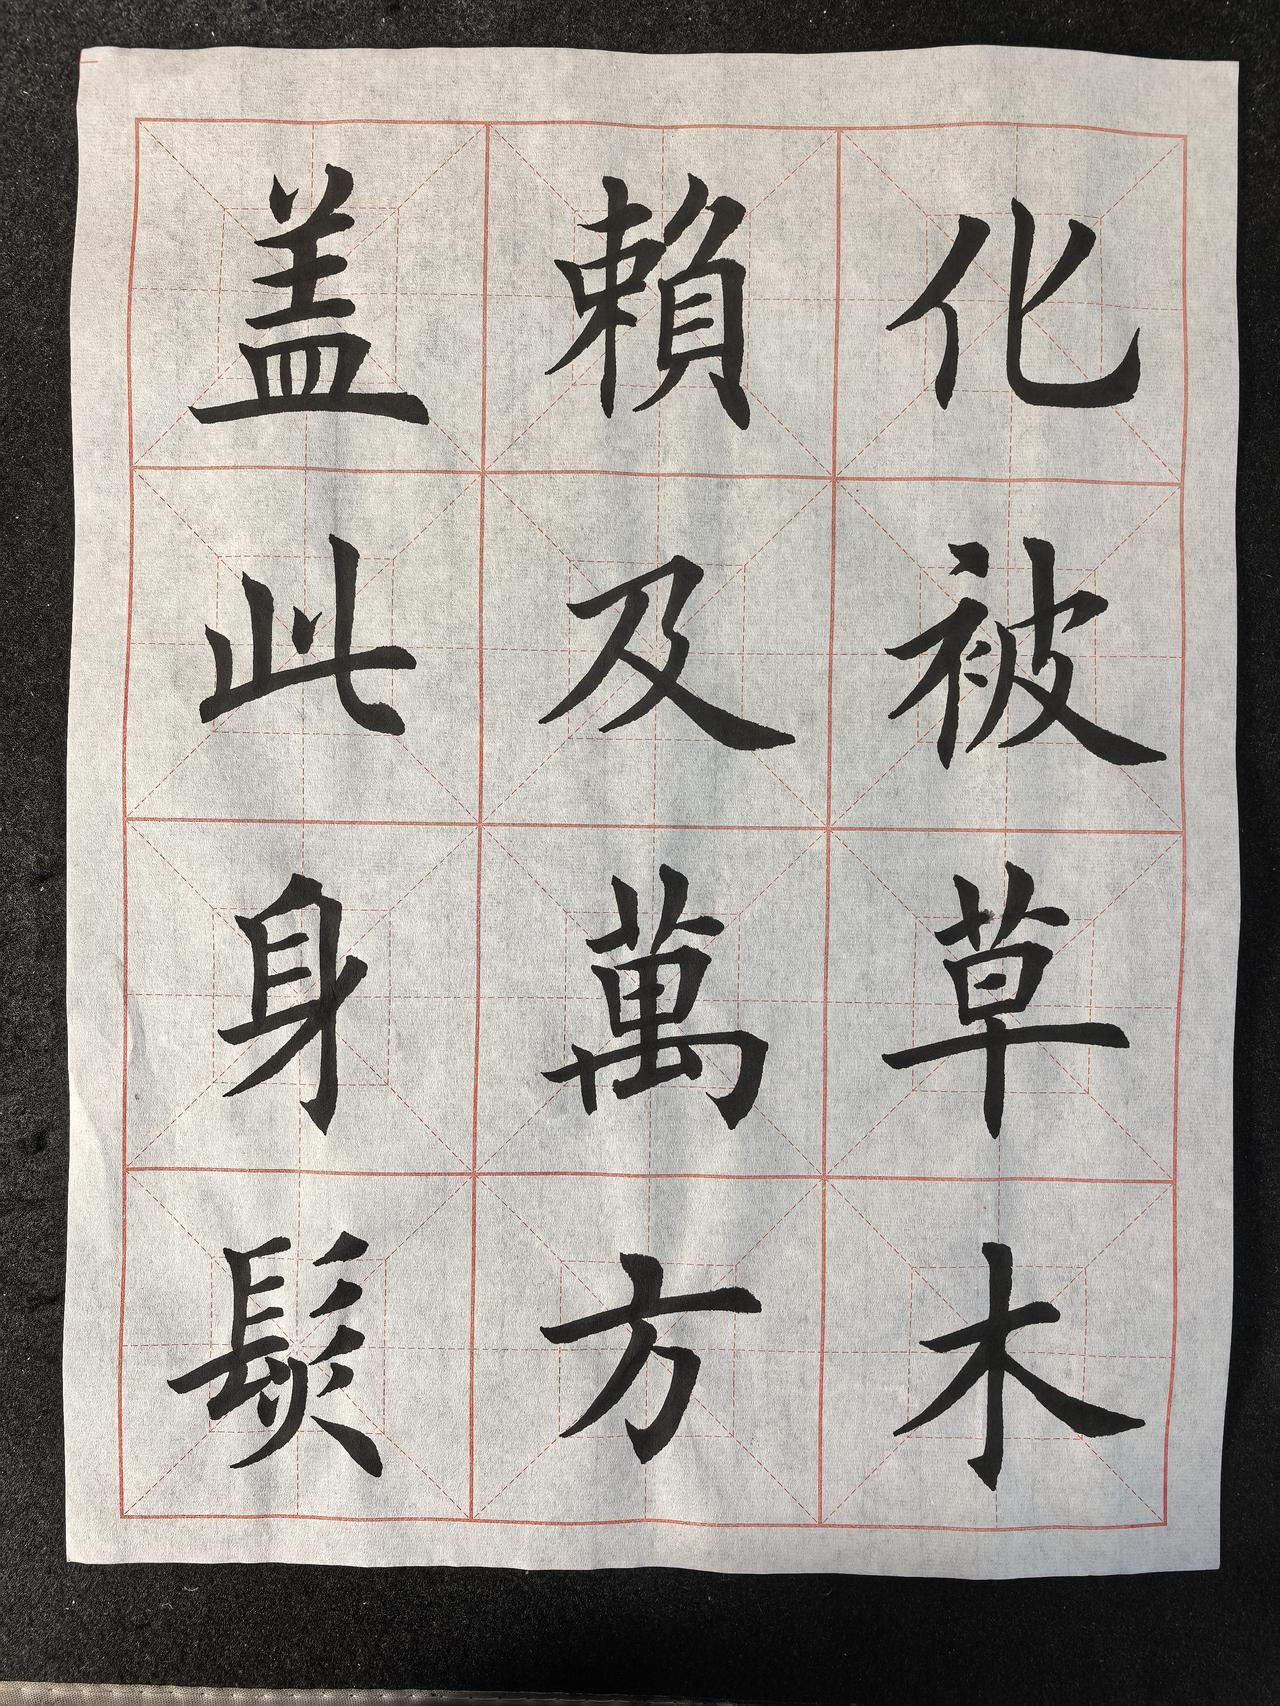 化被草木
賴及萬方
盖此身髮